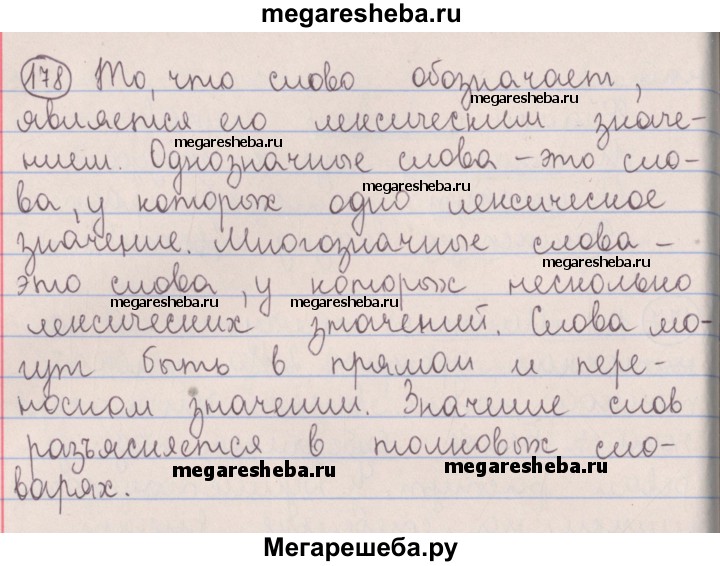 megaresheba.ru
178 То, что слово обозначает,
megaresheba.ru
является его лексическим значе-
megaresheba.ru
нием. Однозначные слова – это сло-
megaresheba.ru
ва, у которых одно лексическое
значение. Многозначные слова –
это слова, у которых несколько
megaresheba.ru megaresheba.ru
лексических значений. Слова мо-
гут быть в прямом и пере-
носном значении. Значение слов
разъясняется в толковых сло-
megaresheba.ru megaresheba.ru
варях.
Мегарешеба.ру